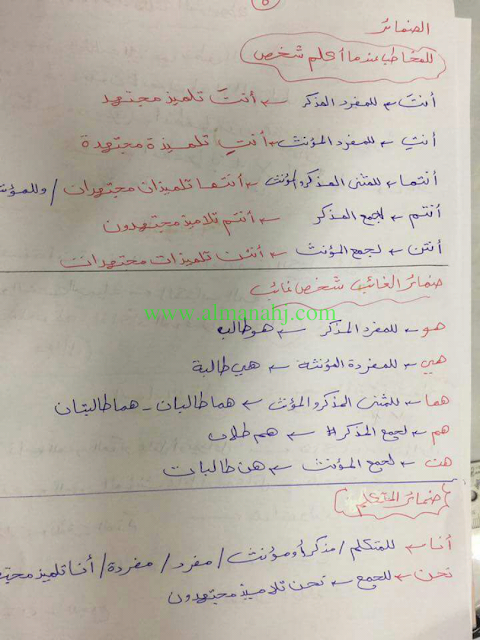 ٥
الضمائر
للمخاطب عندما أكلم شخص
أنتَ ← للمفرد المذكر ← أنتَ تلميذ مجتهد
أنتِ ← للمفرد المؤنث ← أنتِ تلميذة مجتهدة
أنتما ← للمثنى المذكر والمؤنث ← أنتما تلميذان مجتهدان / وللمؤنث
أنتم ← لجمع المذكر ← أنتم تلاميذ مجتهدون
أنتن ← لجمع المؤنث ← أنتن تلميذات مجتهدات
ضمائر الغائب شخص غائب
www.almanahj.com
هو ← للمفرد المذكر ← هو طالب
هي ← للمفردة المؤنثة ← هي طالبة
هما ← للمثنى المذكر والمؤنث ← هما طالبان - هما طالبتان
هم ← لجمع المذكر ← هم طلاب
هن ← لجمع المؤنث ← هن طالبات
ضمائر المتكلم
أنا ← للمتكلم / مذكر أو مؤنث / مفرد / مفردة / أنا تلميذ
نحن ← للجمع ← نحن تلاميذ مجتهدون